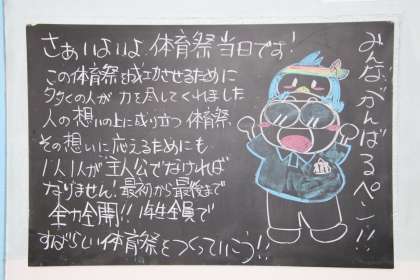 さぁいよいよ体育祭当日です!
この体育祭を成功させるために
多くの人が力を尽してくれました
人の想いの上に成り立つ体育祭
その想いに応えるためにも
1人1人が"主人公でなければ
なりません!最初から最後まで
全力全開!!1年生全員で
すばらしい体育祭をつくっていこう!!
みんながんばるペン!!